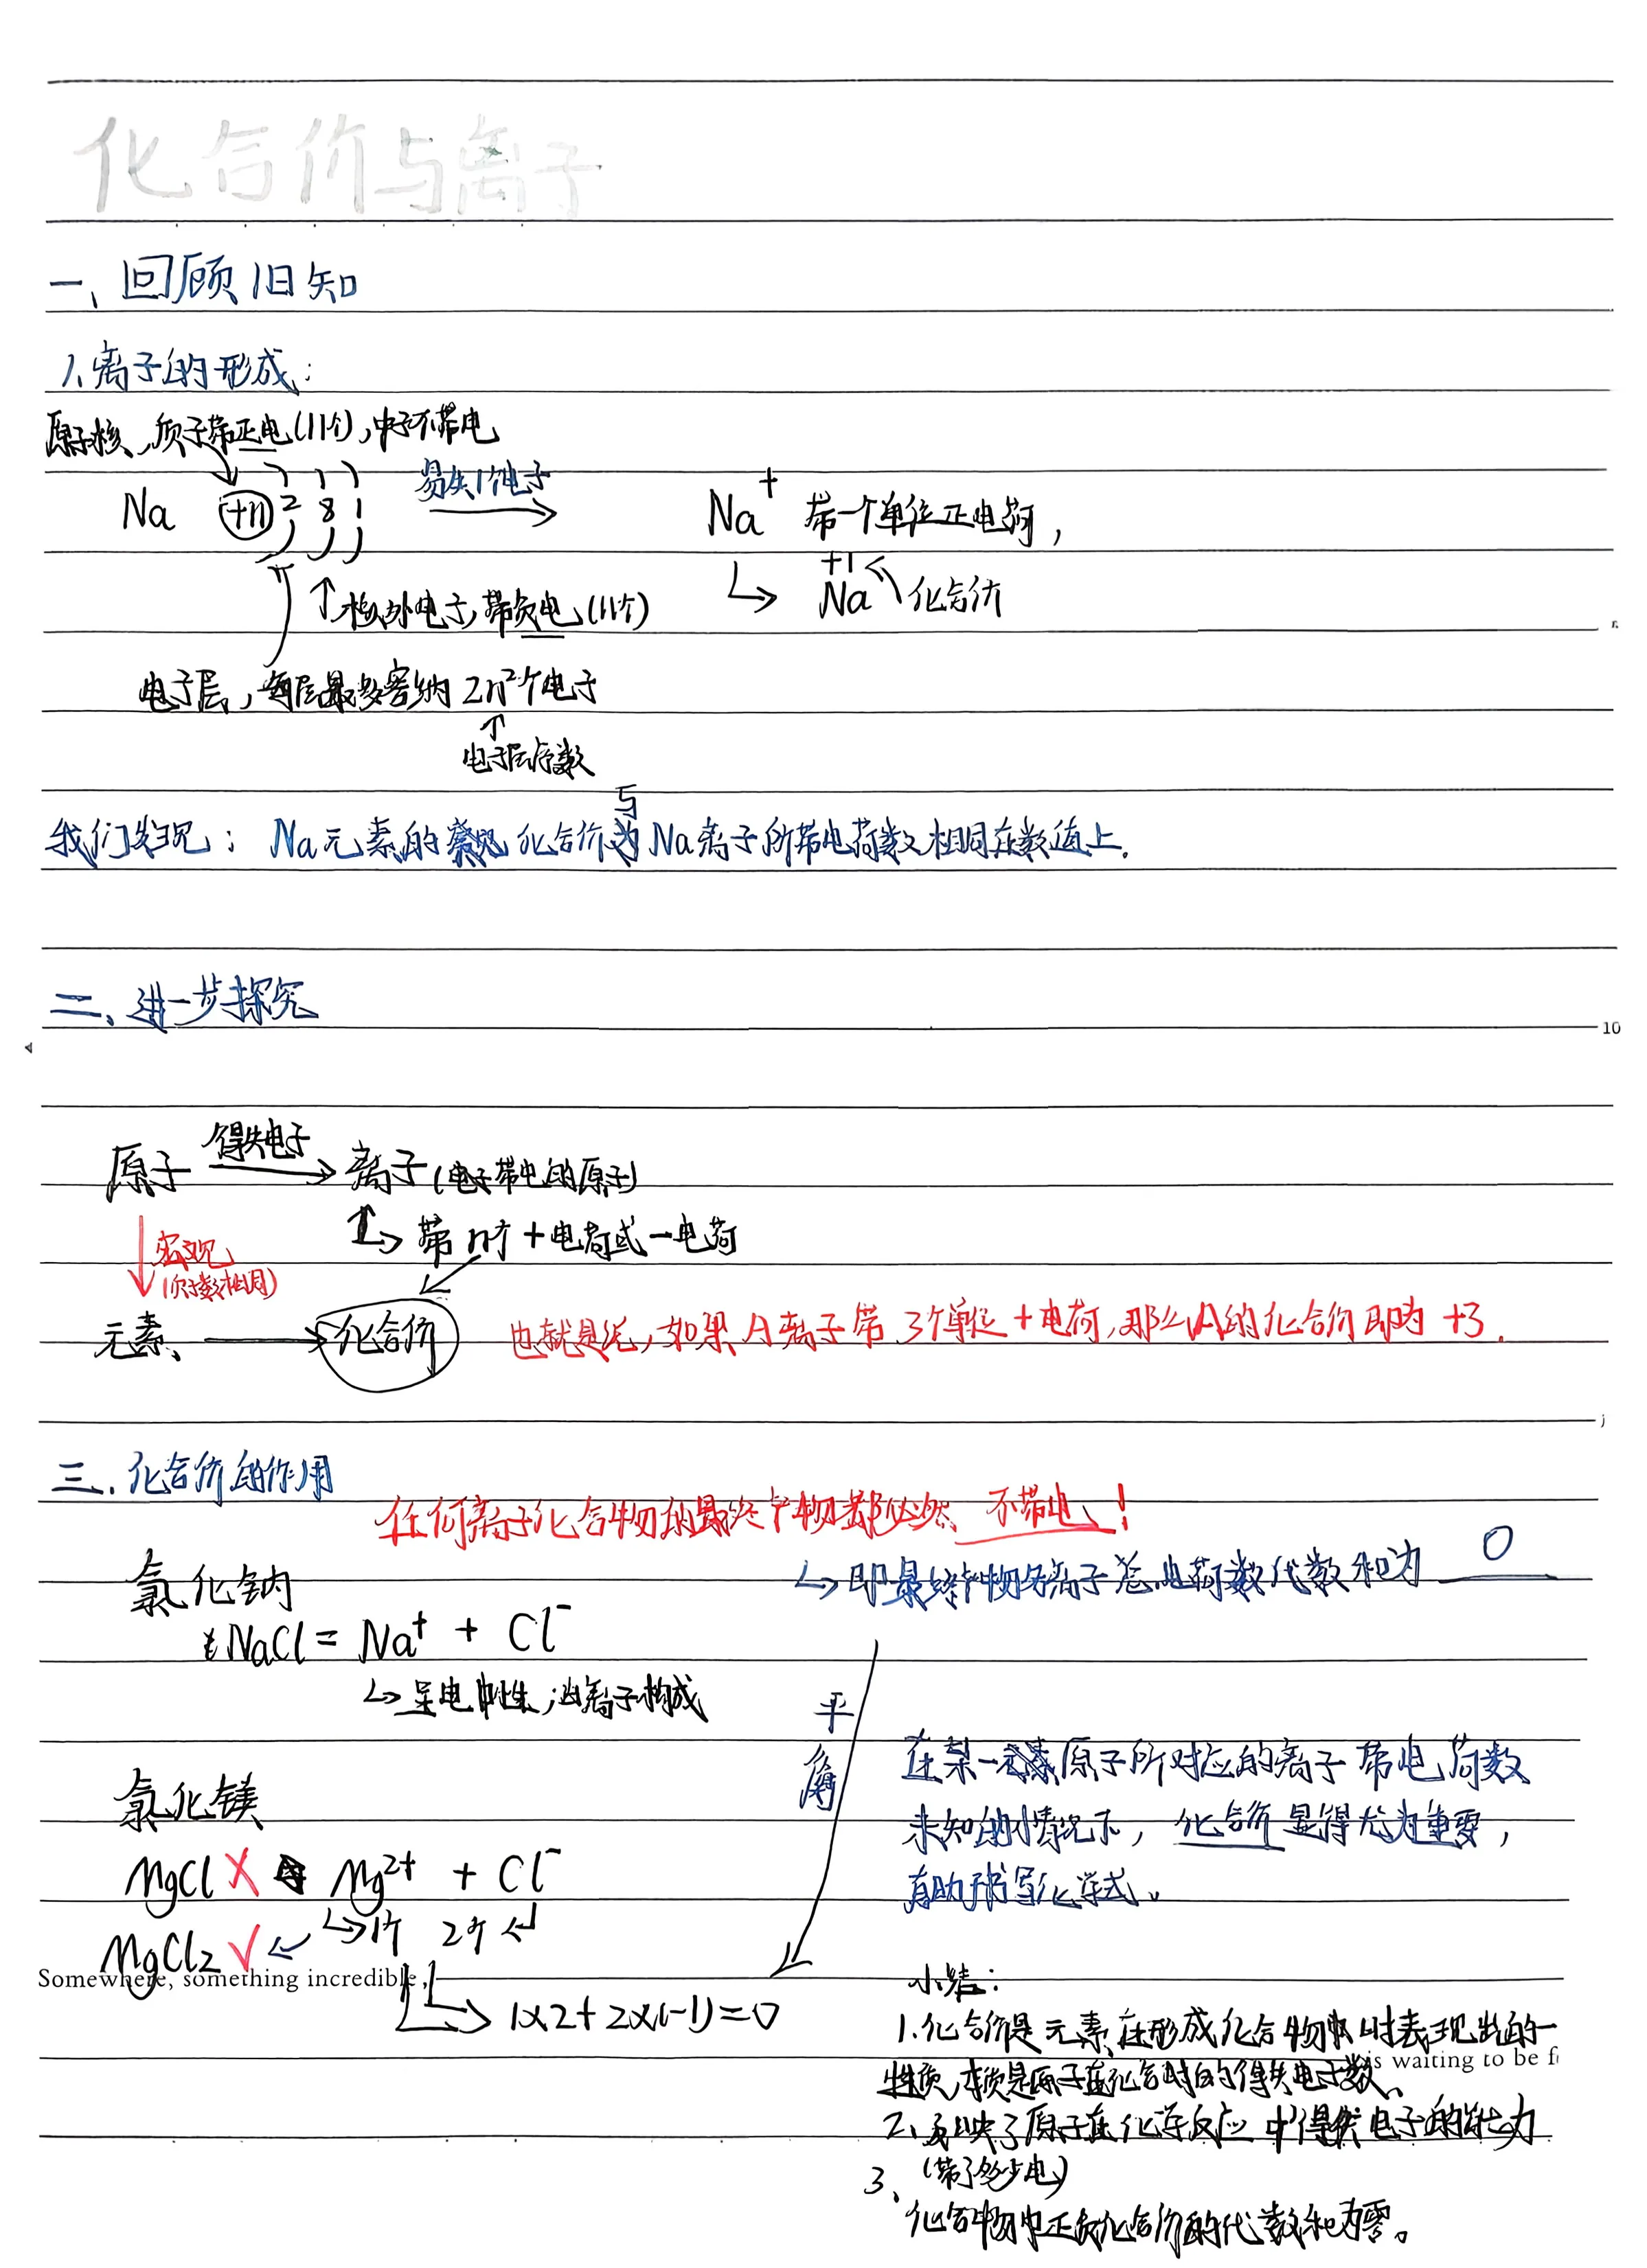 化合价与离子
一、回顾旧知
1.离子的形成:
原子核、质子带正电(11个),中子不带电
Na +11 2 8 1 易失1个电子 Na⁺ 带一个单位正电荷,
+1
Na 化合价
核外电子,带负电(11个)
电子层,每层最多容纳2n²个电子
电子层序数
我们发现: Na元素的化合价与Na离子所带电荷数相同在数值上.
二、进一步探究
原子 得失电子 离子(带电的原子)
带n个+电荷或-电荷
宏观
(质子数相同)
元素、 化合价 也就是说,如果A离子带3个单位+电荷,那么A的化合价即为+3.
三.化合价的作用
任何离子化合物的最终产物都必然不带电!
即最终产物各离子总电荷数代数和为 0
氯化钠
NaCl = Na⁺ + Cl⁻
呈电中性,由离子构成
氯化镁
MgCl X Mg²⁺ + Cl⁻
1个 2个
MgCl₂ √
1×2+2×(-1)=0
在某一元素原子所对应的离子带电荷数
未知的情况下,化合价显得尤为重要,
有助于书写化学式。
Somewhere, something incredible
is waiting to be f
小结:
1.化合价是元素在形成化合物时表现出的一
性质,本质是原子在化合时的得失电子数、
2、反映了原子在化学反应中得失电子的能力
(带了多少电)
3、
化合物中正负化合价的代数和为零。
10